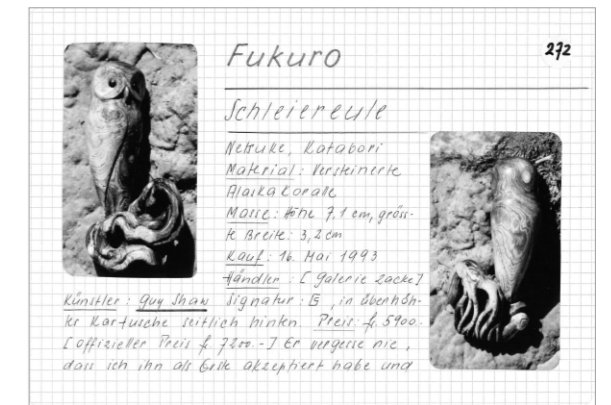 Fukuro
272
Schleiereule
Netsuke, Katabori
Material: Versteinerte
Alaska Koralle
Masse: Höhe 7.1 cm, gröss-
te Breite: 3,2 cm
Kauf: 16. Mai 1993
Händler: [Galerie Zacke]
Künstler: Guy Shaw Signatur: , in überhöh-
ter Kartusche seitlich hinten. Preis: fr. 5900.-
[offizieller Preis fr. 7200.-] Er vergesse nie,
dass ich ihn als Erste akzeptiert habe und